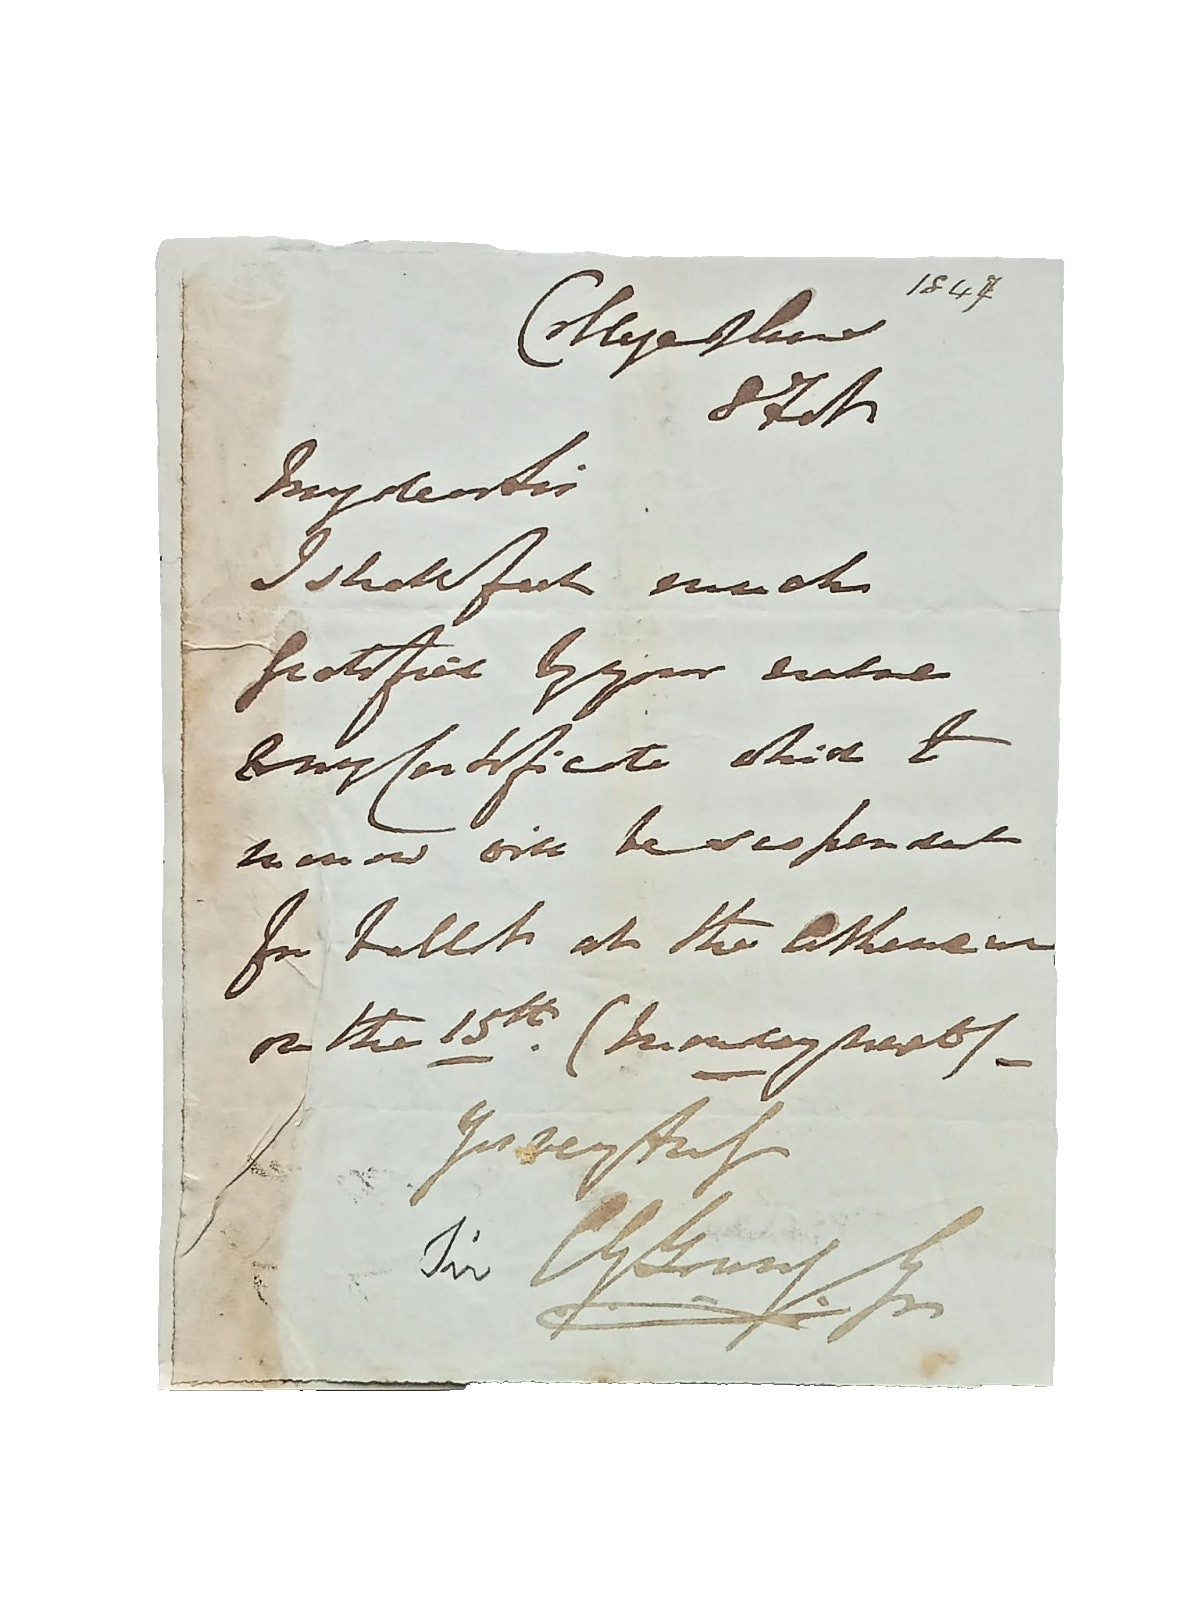 1847
College of Arms
8 Feb
My dear Sir
I shall feel much
gratified by your name
on my Certificate which I
know will be suspended
for ballot at the Athenaeum
on the 15th. (Monday next) —
Yrs very truly
Sir CGYoung Gr